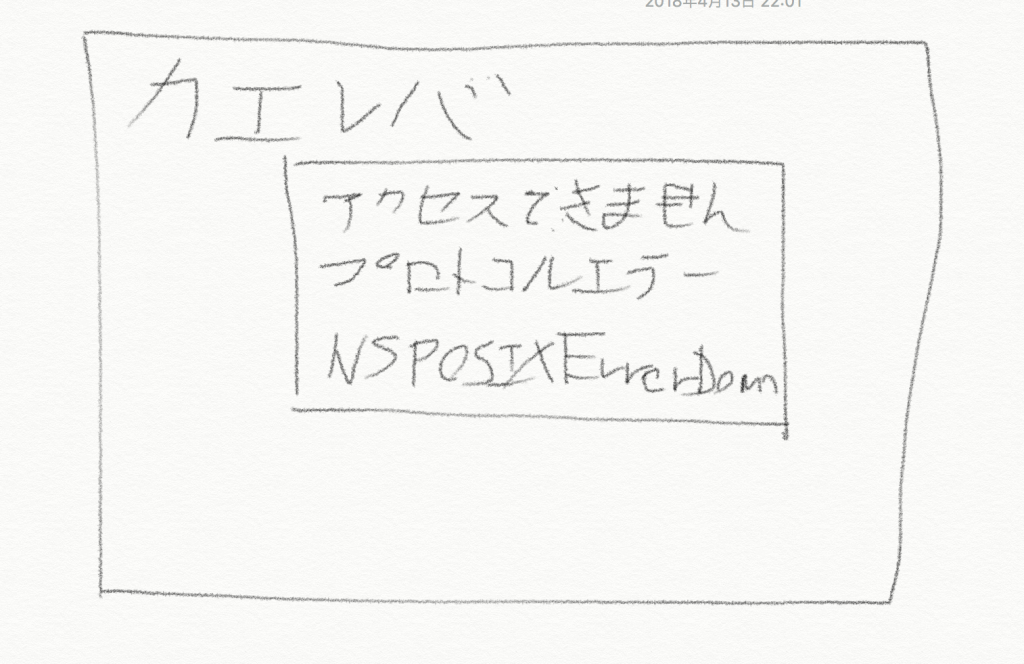 2018年4月13日 22:01
カエレバ
アクセスできません
プロトコルエラー
NSPOSIXErrorDom